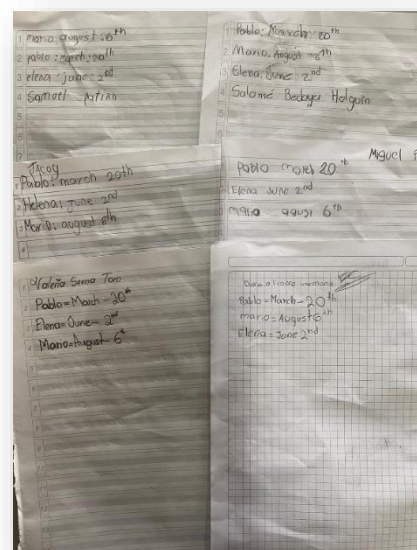 1 mario august : 6th
2 pablo : march : 20th
3 elena : june : 2nd
4 Samuel
5
6
7
1 Pablo: March: 20th
2 Mario: August 6th
3 Elena June 2nd
4 Salomé Bedoya Holguin
5
Jacob
1 Pablo: march 20th
2 Helena: June 2nd
3 Mario: august 6th
4
Miguel
Pablo march 20th
Elena June 2nd
Mario 6th
1 Valeria Serna Toro
2 Pablo = March - 20th
3 Elena = June - 2nd
4 Mario = August - 6th
Pablo = March - 20th
mario = August 6th
Elena = June 2nd